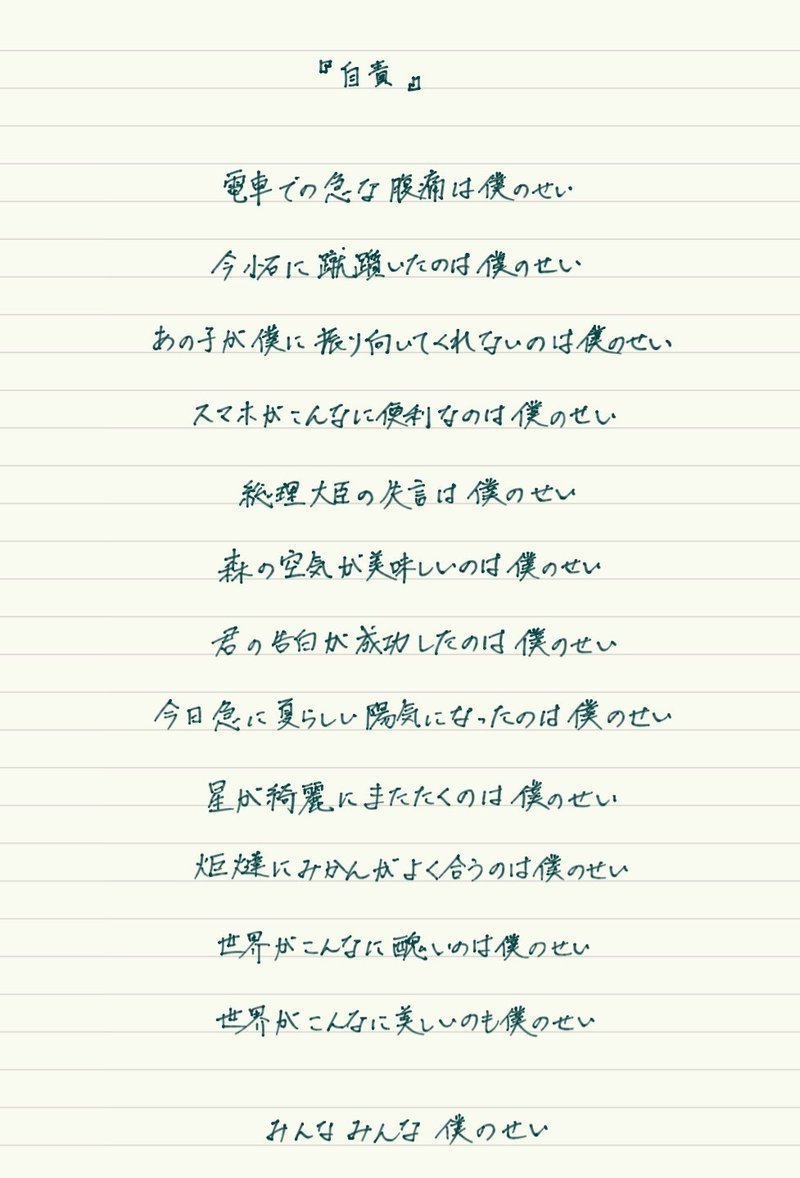 『自責』
電車での急な腹痛は僕のせい
今小石に蹴躓いたのは僕のせい
あの子が僕に振り向いてくれないのは僕のせい
スマホがこんなに便利なのは僕のせい
総理大臣の失言は僕のせい
森の空気が美味しいのは僕のせい
君の告白が成功したのは僕のせい
今日急に夏らしい陽気になったのは僕のせい
星が綺麗にまたたくのは僕のせい
炬燵にみかんがよく合うのは僕のせい
世界がこんなに醜いのは僕のせい
世界がこんなに美しいのも僕のせい
みんなみんな僕のせい